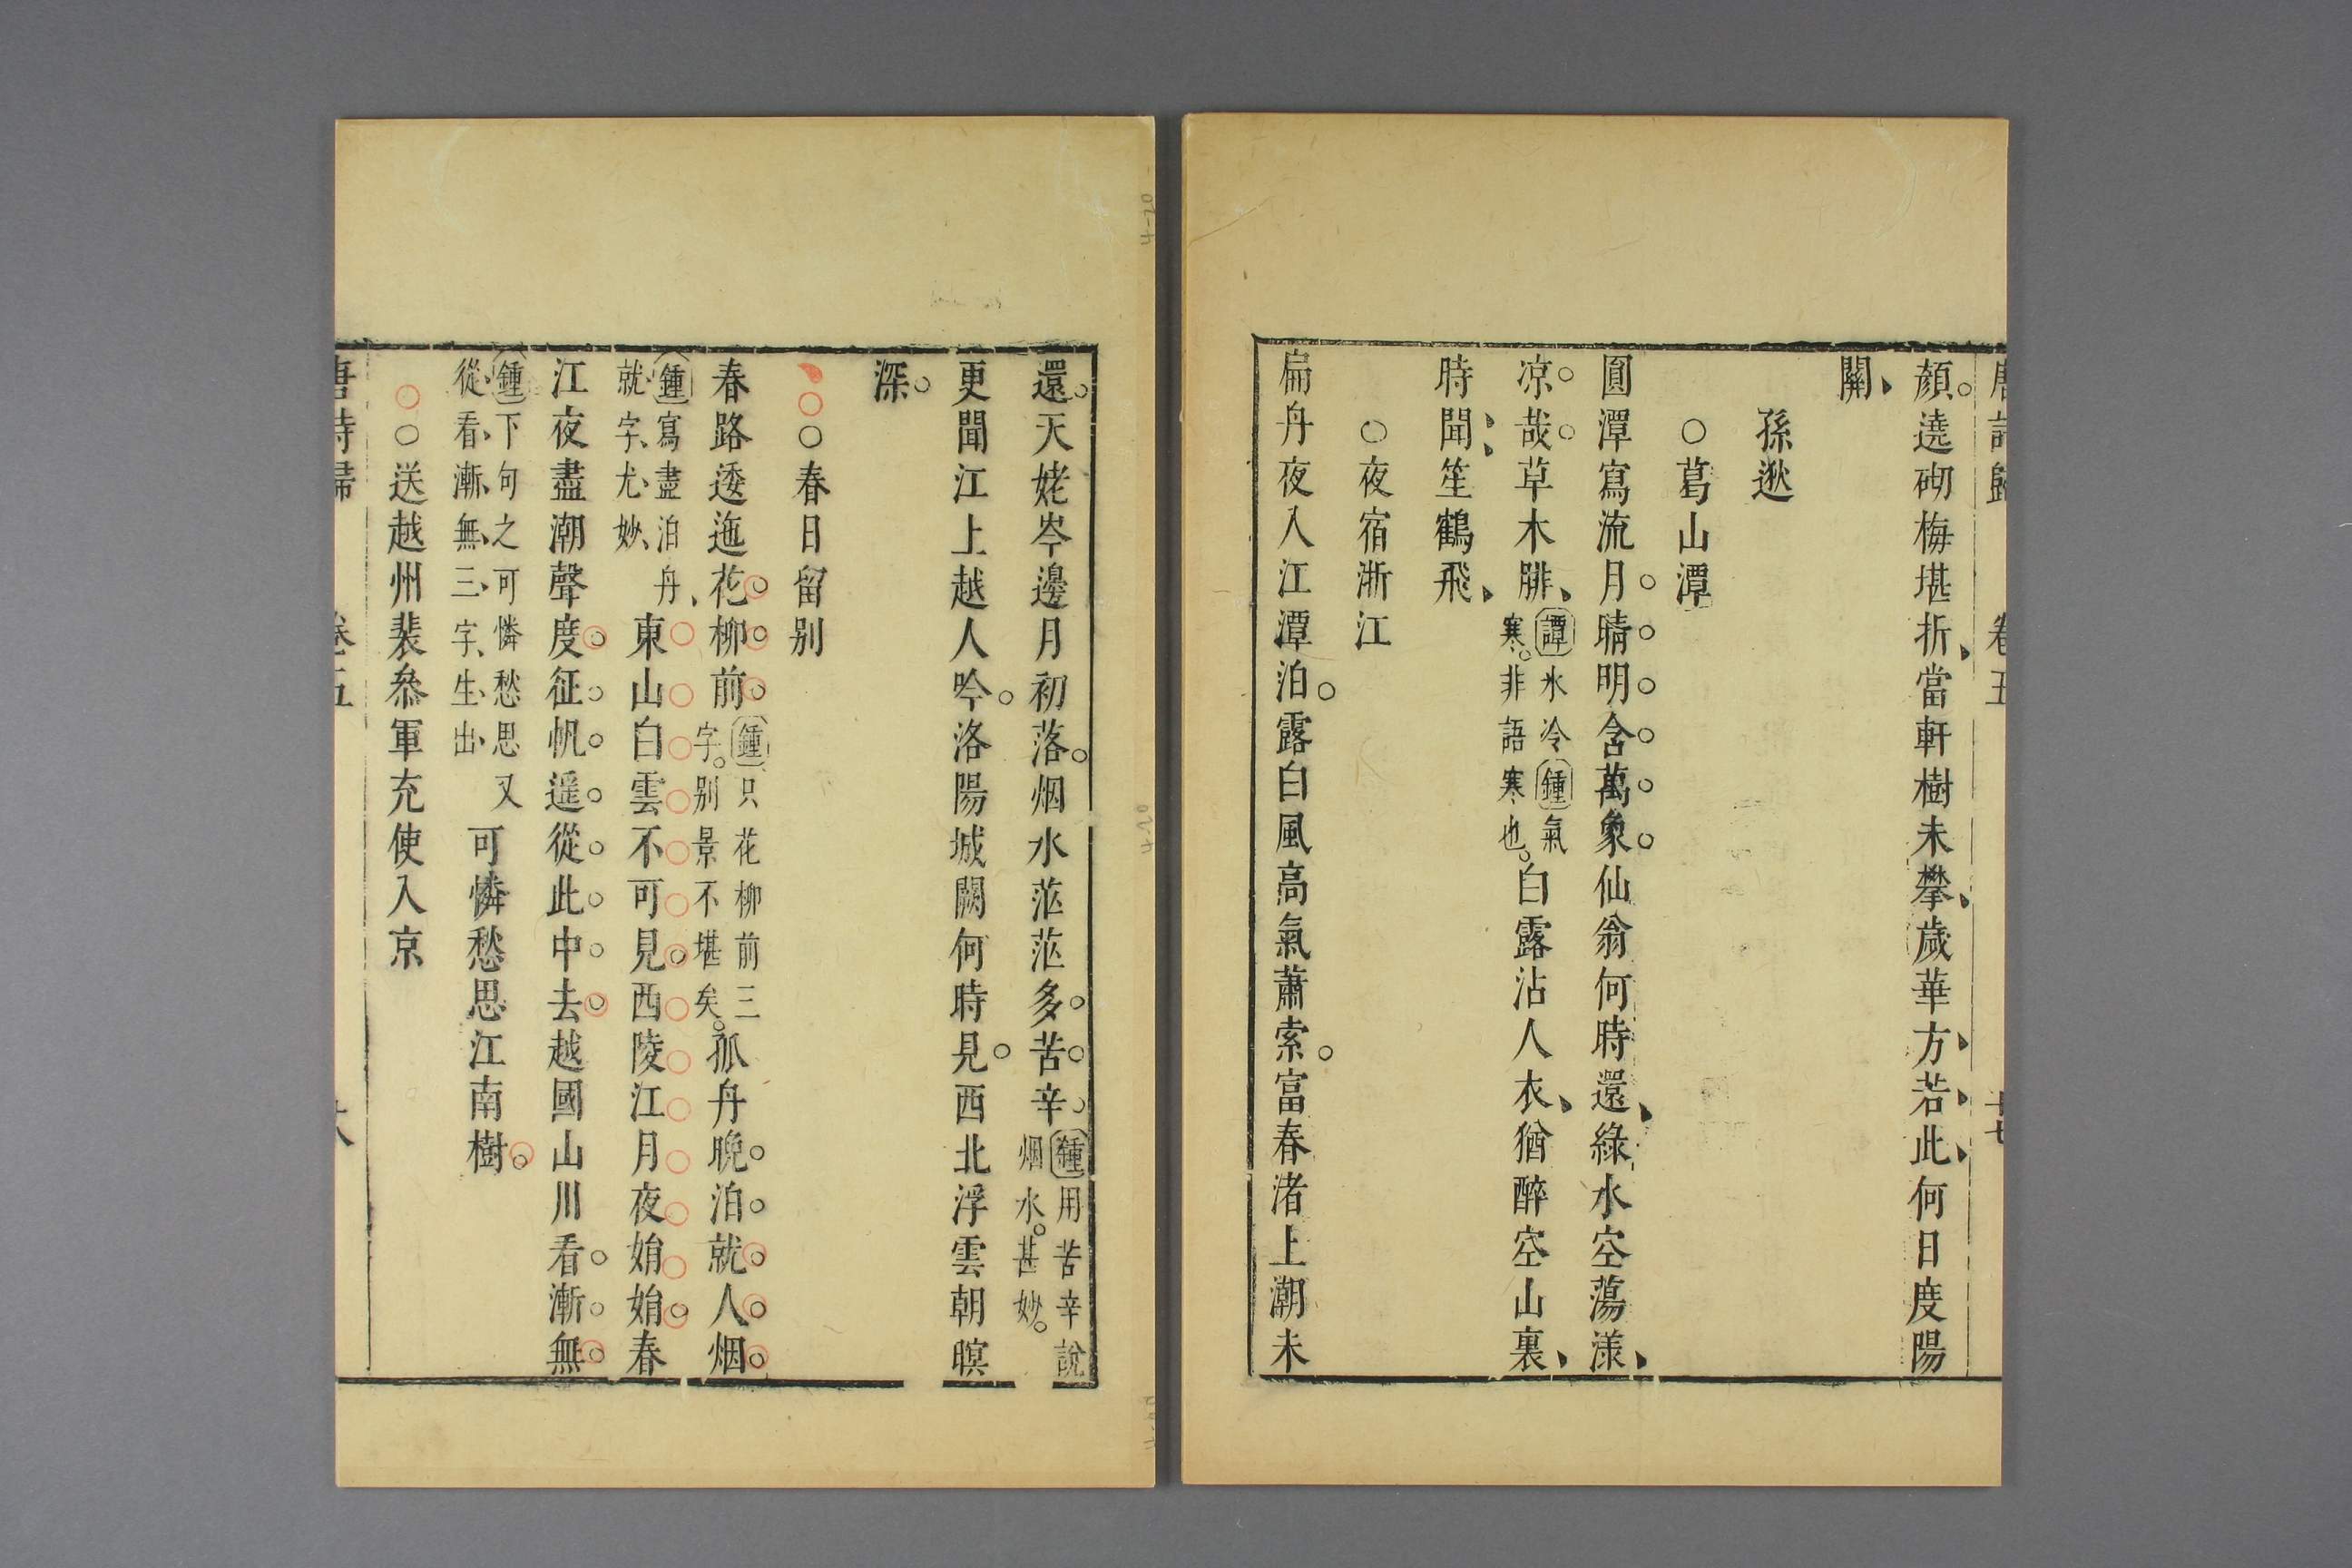 唐詩歸 卷五 十七
顏遶砌梅堪折當軒樹未攀歲華方若此何日度陽
關
孫逖
○葛山潭
圓潭寫流月晴明含萬象仙翁何時還綠水空蕩漾
凉哉草木腓
譚水冷鍾氣
寒非語寒也
白露沾人衣猶醉空山裏
時聞笙鶴飛
○夜宿浙江
扁舟夜入江潭泊露白風高氣蕭索富春渚上潮未
還天姥岑邊月初落烟水茫茫多苦辛
鍾用苦辛說
烟水甚妙
更聞江上越人吟洛陽城闕何時見西北浮雲朝暝
深
○○春日留別
春路逶迤花柳前
鍾只花柳前三
字別景不堪矣
孤舟晚泊就人烟
鍾寫盡泊舟
就字尤妙
東山白雲不可見西陵江月夜娟娟春
江夜盡潮聲度征帆遥從此中去越國山川看漸無
鍾下句之可憐愁思又
從看漸無三字生出
可憐愁思江南樹
○○送越州裴叅軍充使入京
唐詩歸 卷五 十八